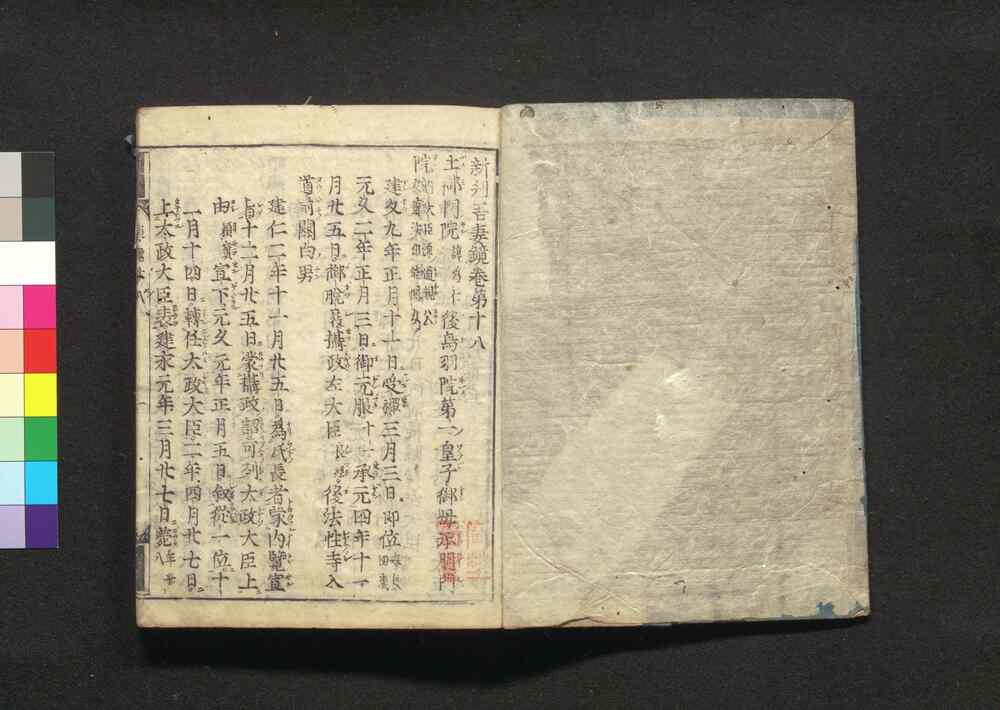 新刊吾妻鏡巻第十八
土御門院 諱為仁 後鳥羽院第一皇子御母承明門
院
建久九年正月十一日受禅三月三日即位
元久二年正月三日御元服十一承元四年十一
月廿五日御脱屣摂政左大臣良経後法性寺入
道前関白男
建仁二年十一月廿五日為氏長者蒙内覧宣
旨十二月廿五日蒙摂政詔可列太政大臣上
由宣下元久元年正月五日叙従一位十
一月十四日轉任太政大臣二年四月廿七日
上太政大臣表建永元年三月廿七日薨年廿八